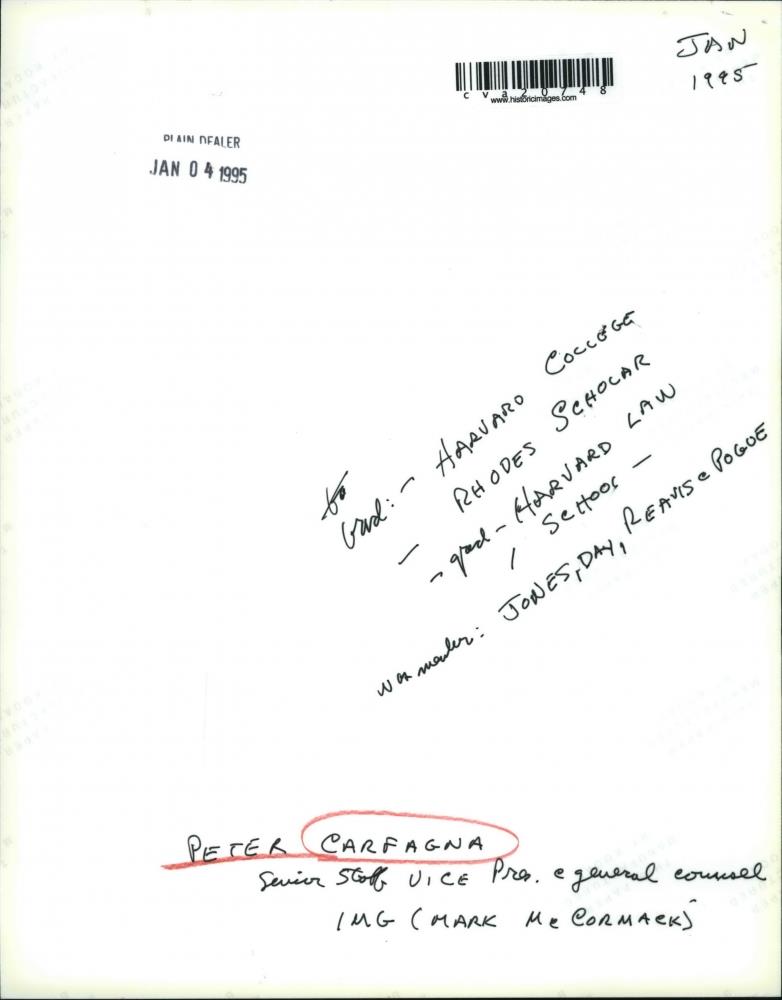 JAN
1995
cva20748
www.historicimages.com
PLAIN DEALER
JAN 04 1995
Grad: - HARVARD COLLEGE
- RHODES SCHOLAR
- grad - HARVARD LAW
SCHOOL -
was member: JONES, DAY, REAVIS & POGUE
PETER CARFAGNA
Senior Staff VICE Pres. & general counsel
IMG (MARK McCORMACK)